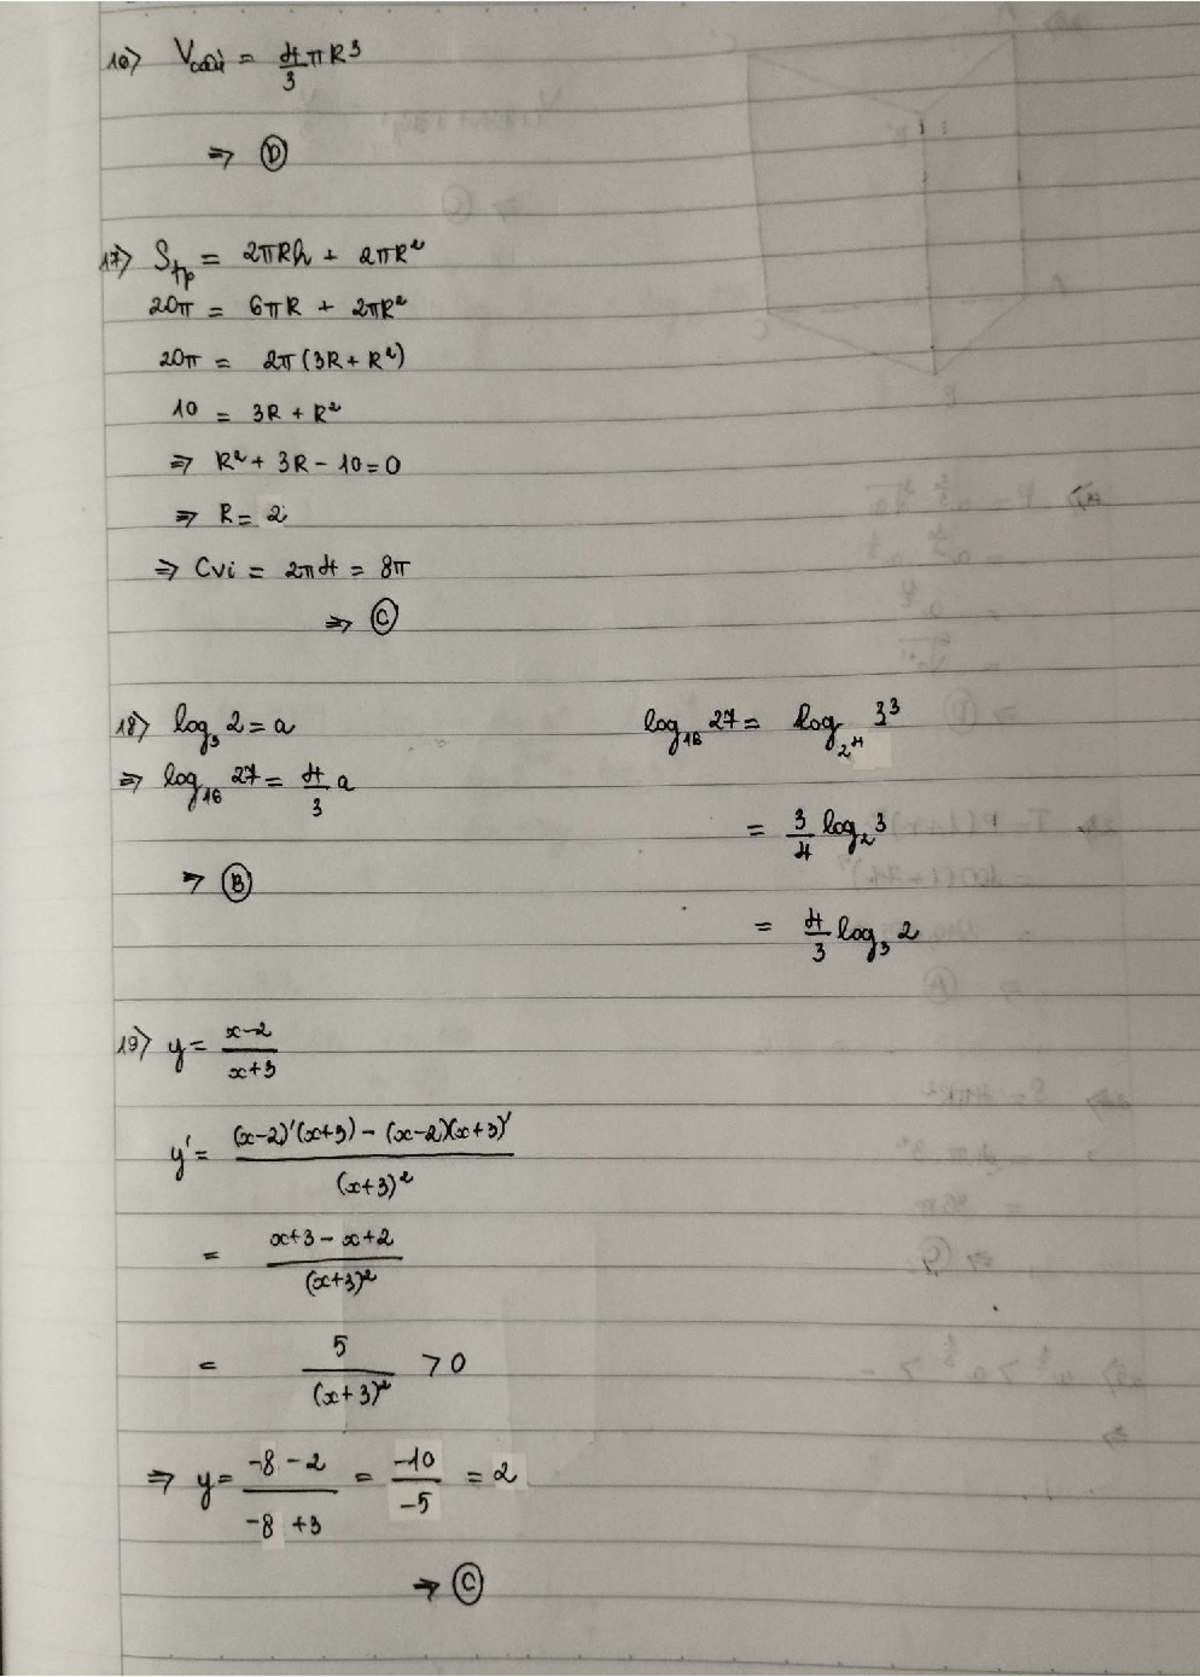 16> Vcầu = 4/3 πR³
⇒ Ⓓ
17> Stp = 2πRh + 2πR²
20π = 6πR + 2πR²
20π = 2π(3R + R²)
10 = 3R + R²
⇒ R² + 3R - 10 = 0
⇒ R = 2
⇒ Cvi = 2π4 = 8π
⇒ Ⓒ
18> log₃ 2 = a
⇒ log₁₆ 27 = 4/3 a
⇒ Ⓑ
log₁₆ 27 = log_{2⁴} 3³
= 3/4 log₂ 3
= 4/3 log₃ 2
19> y = (x-2)/(x+3)
y' = ((x-2)'(x+3) - (x-2)(x+3)')/(x+3)²
= (x+3-x+2)/(x+3)²
= 5/(x+3)² > 0
⇒ y = (-8-2)/(-8+3) = -10/-5 = 2
⇒ Ⓒ